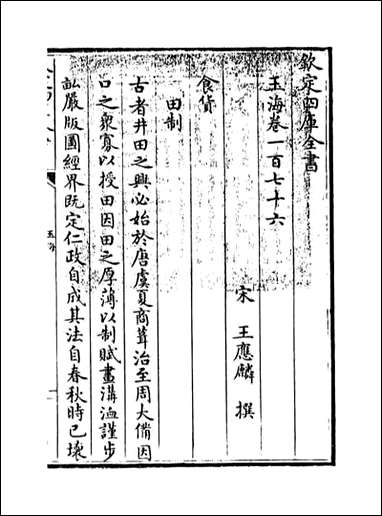 欽定四庫全書
玉海卷一百七十六
宋 王應麟 撰
食貨
田制
古者井田之興必始於唐虞夏商葺治至周大備因
口之衆寡以授田因田之厚薄以制賦畫溝洫謹步
畝嚴版圖經界既定仁政自成其法自春秋時已壞
玉海